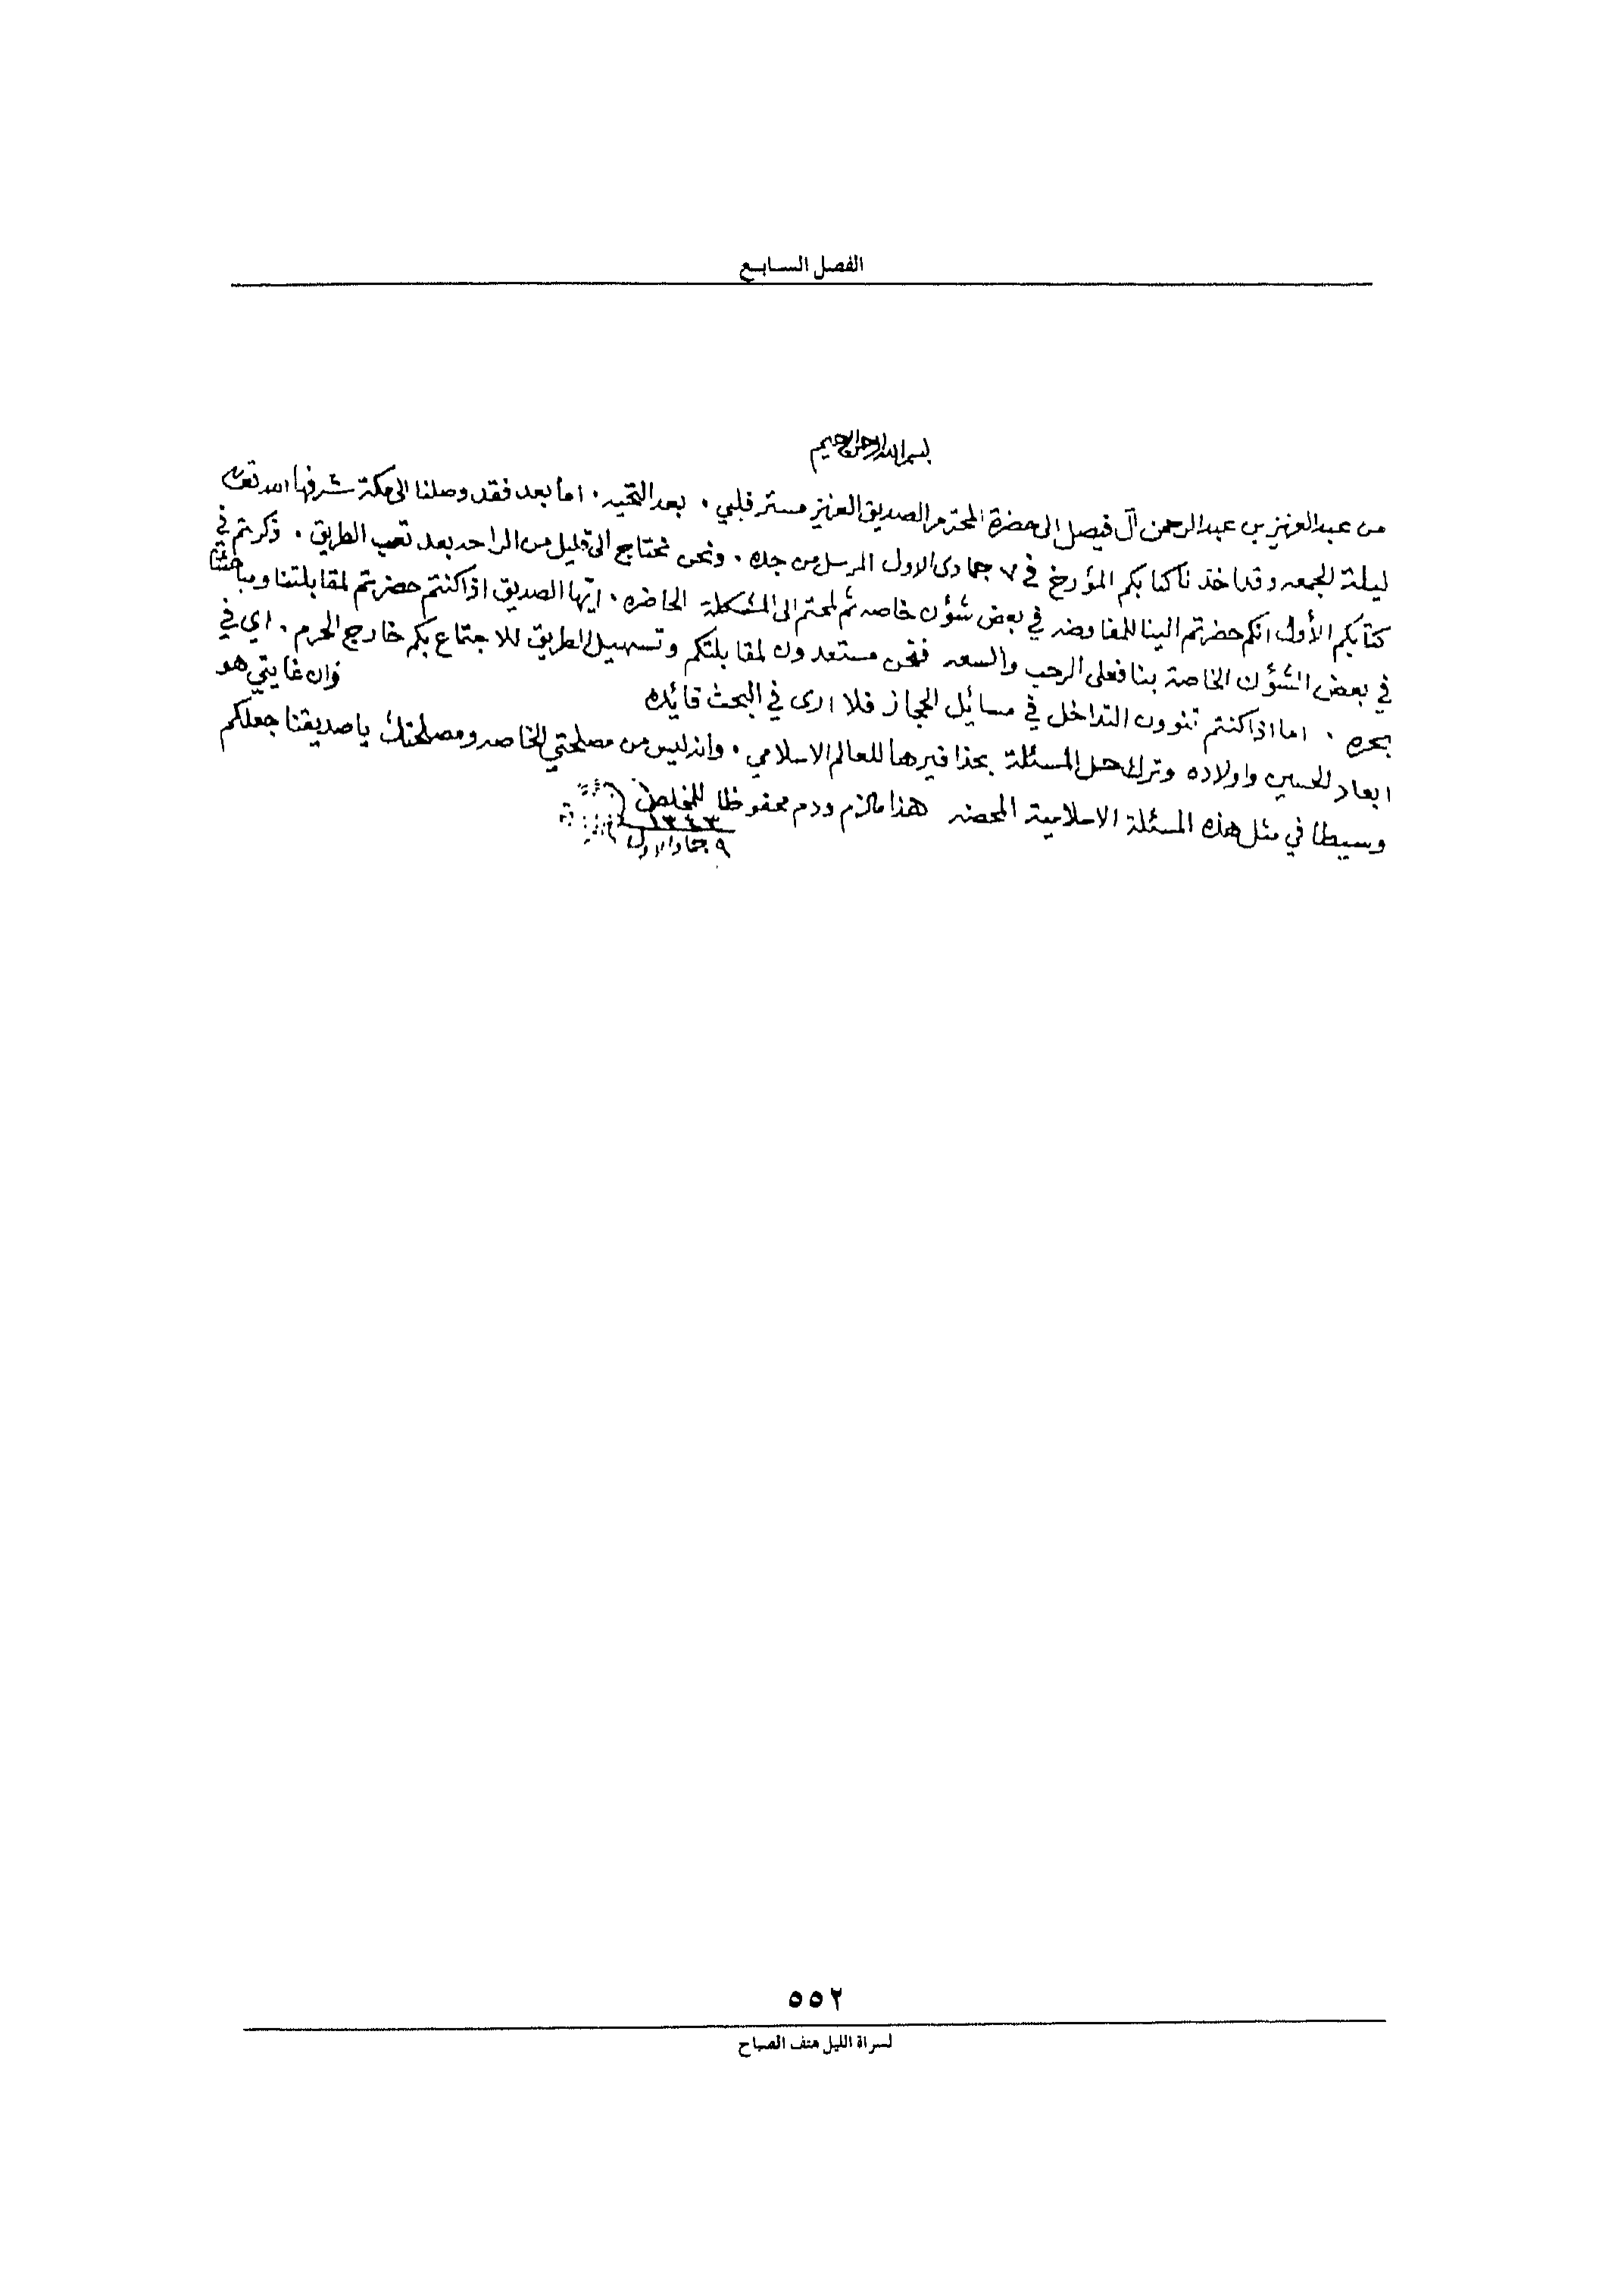 الفصل السابع
بسم الله الرحمن الرحيم
من عبدالعزيز بن عبدالرحمن آل فيصل الى حضرة المحترم الصديق العزيز مستر فلبي ٠ بعد التحيه ٠ اما بعد فقد وصلنا الى مكة شرفها الله تعالى
ليلة الجمعه وقد اخذنا كتابكم المؤرخ في ٧ جمادى الاول المرسل من جده ٠ ونحن نحتاج الى قليل من الراحه بعد تعب الطريق ٠ ذكرتم في
كتابكم الأول انكم حضرتم الينا للمفاوضه في بعض شؤن خاصه ثم لمحتم الى المشكلة الحاضره ٠ ايها الصديق اذا كنتم حضرتم لمقابلتنا ومباحثتنا
في بعض الشؤن الخاصة بنا فعلى الرحب والسعه فنحن مستعدون لمقابلتكم وتسهيل الطريق للاجتماع بكم خارج الحرم ٠ اي في
بحره ٠ اما اذا كنتم تنوون التداخل في مسائل الحجاز فلا ارى في البحث فائده وان غايتي هو
ابعاد الحسين واولاده وترك حل المسئلة بحذافيرها للعالم الاسلامي ٠ وانه ليس من مصلحتي الخاصه ومصلحتك يا صديقنا جعلكم
وسيطا في مثل هذه المسئلة الاسلامية المحضه هذا مالزم ودم محفوظا للمخلص
١٣٤٣
٩ جماد الاول
٥٥٢
لسراة الليل هتف الصباح